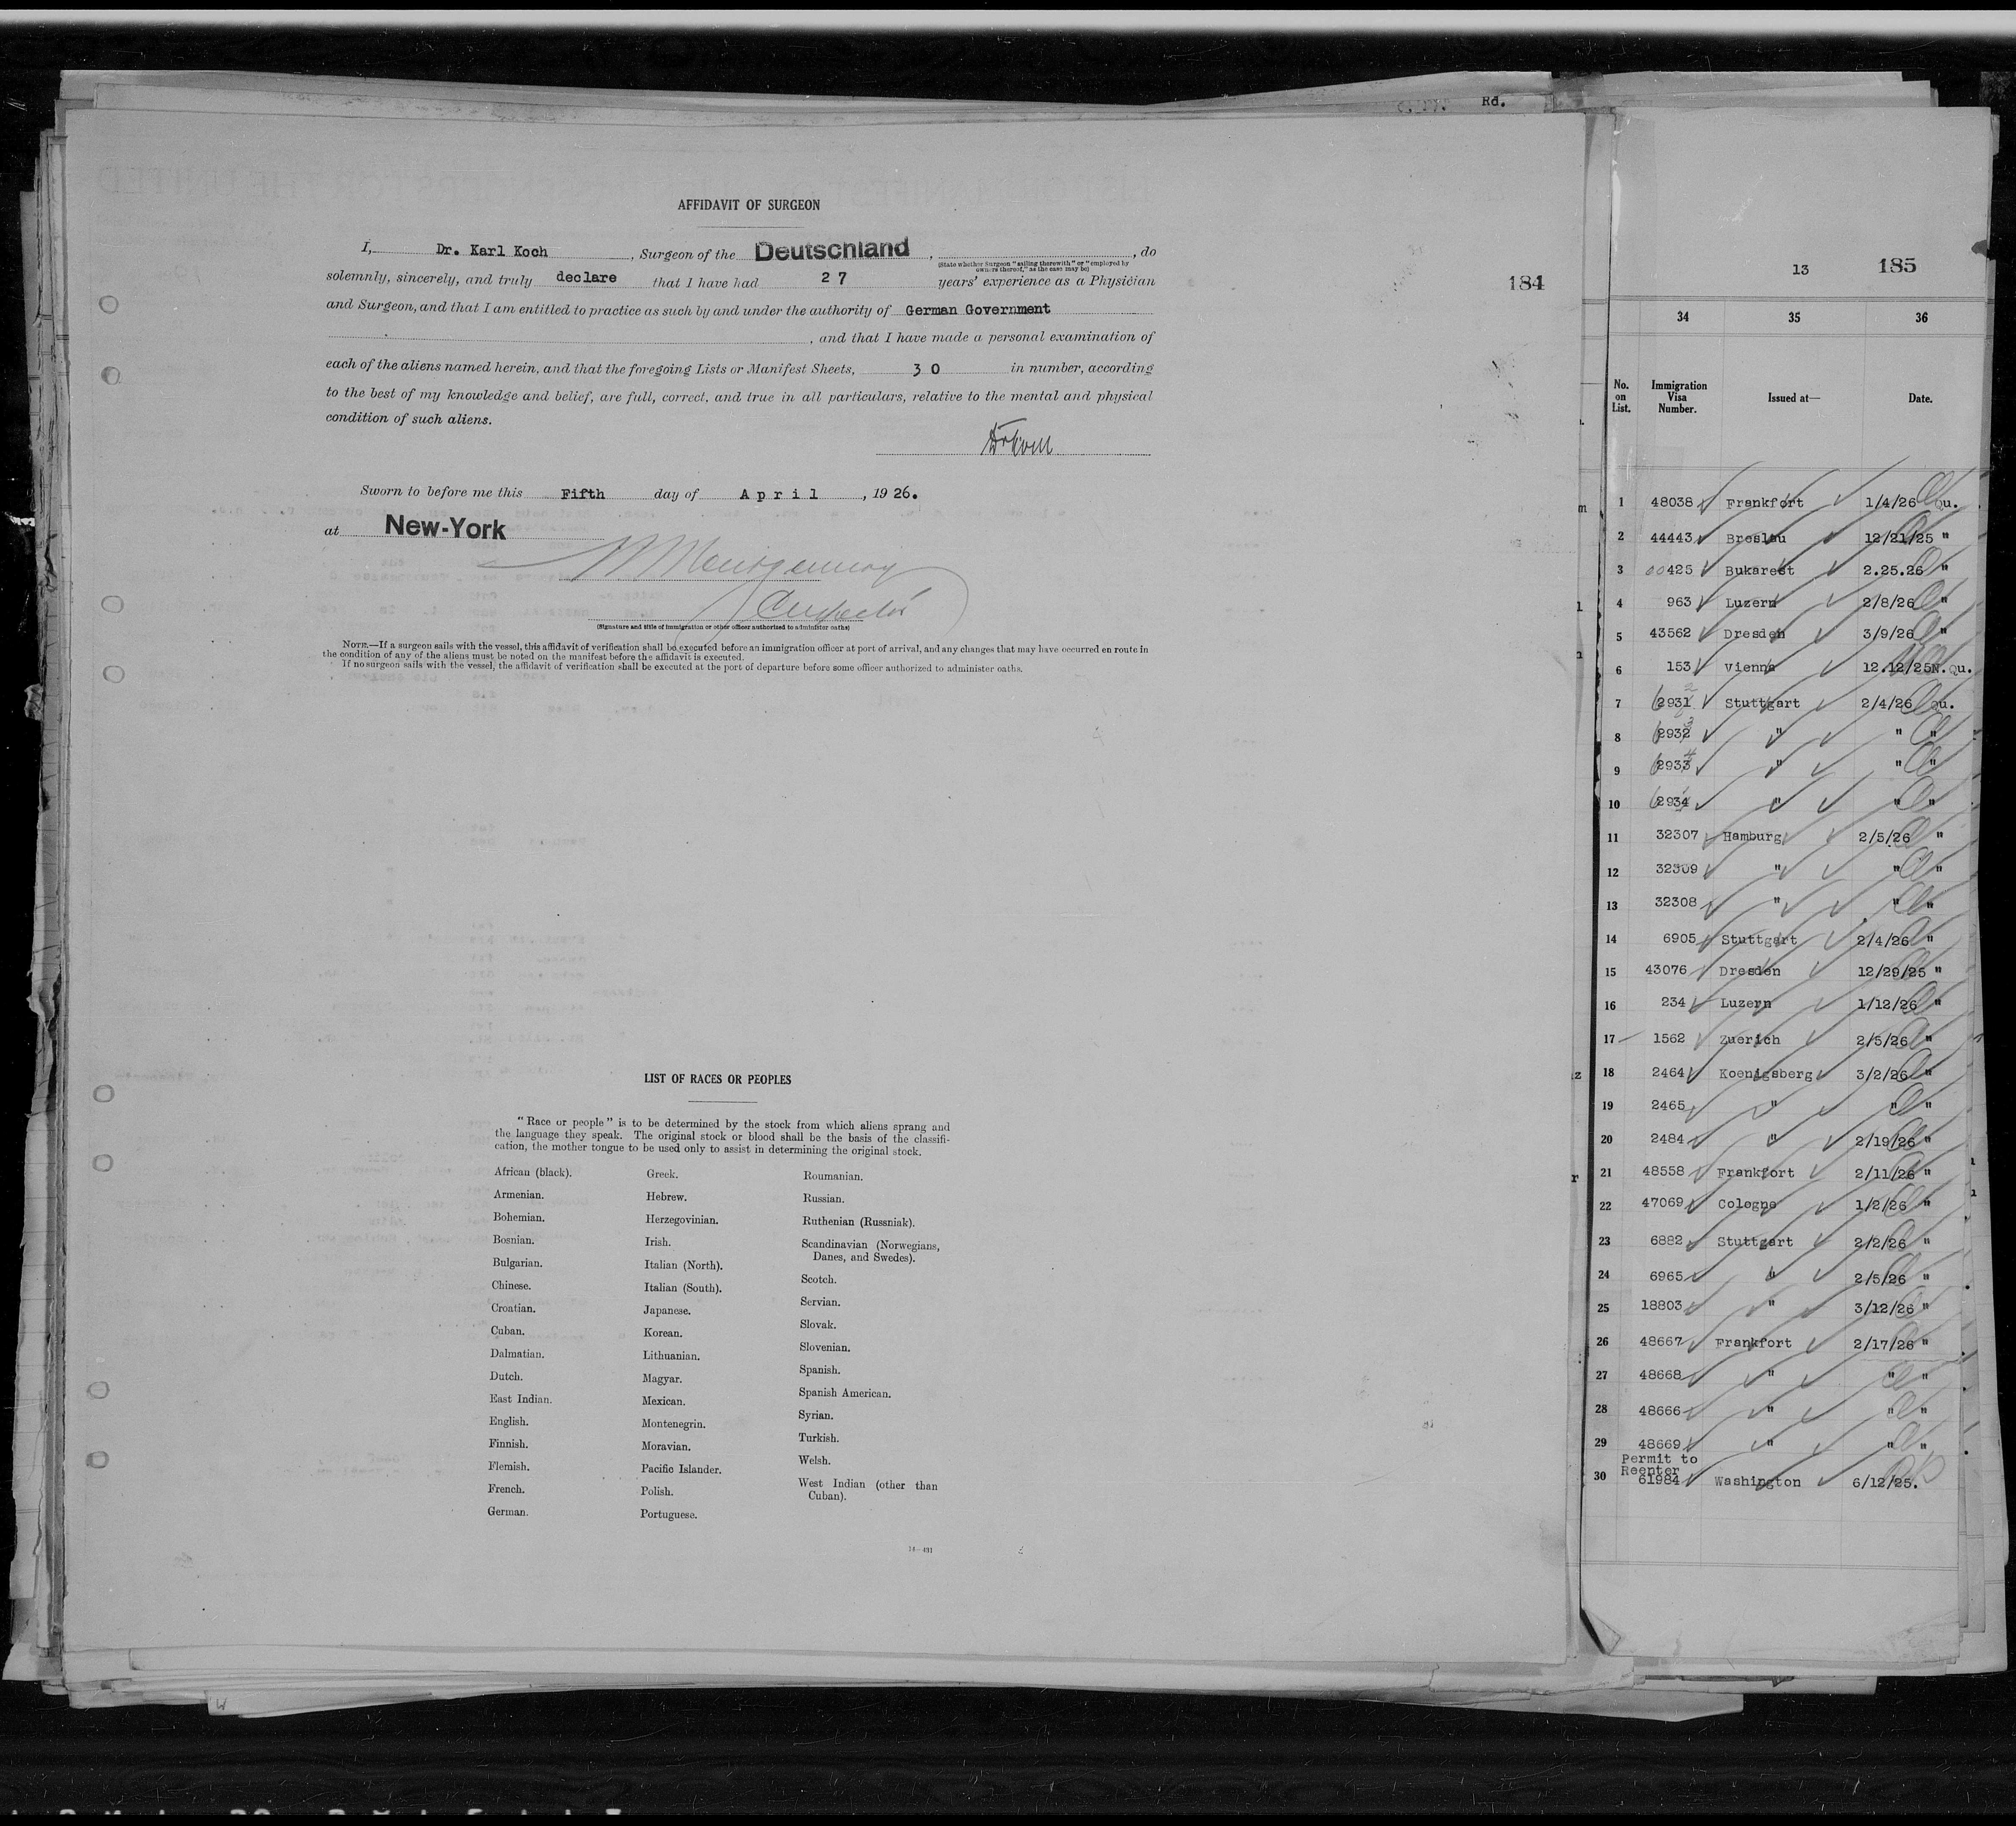 Rd.
AFFIDAVIT OF SURGEON
I, Dr. Karl Koch, Surgeon of the Deutschland, , do
(State whether Surgeon "sailing therewith" or "employed by
owners thereof," as the case may be)
solemnly, sincerely, and truly declare that I have had 2 7 years' experience as a Physician
and Surgeon, and that I am entitled to practice as such by and under the authority of German Government
, and that I have made a personal examination of
each of the aliens named herein, and that the foregoing Lists or Manifest Sheets, 3 0 in number, according
to the best of my knowledge and belief, are full, correct, and true in all particulars, relative to the mental and physical
condition of such aliens.
Sworn to before me this Fifth day of A p r i l , 19 26.
at New-York
Inspector
(Signature and title of immigration or other officer authorized to administer oaths)
NOTE.—If a surgeon sails with the vessel, this affidavit of verification shall be executed before an immigration officer at port of arrival, and any changes that may have occurred en route in
the condition of any of the aliens must be noted on the manifest before the affidavit is executed.
If no surgeon sails with the vessel, the affidavit of verification shall be executed at the port of departure before some officer authorized to administer oaths.
184
LIST OF RACES OR PEOPLES
"Race or people" is to be determined by the stock from which aliens sprang and
the language they speak. The original stock or blood shall be the basis of the classifi-
cation, the mother tongue to be used only to assist in determining the original stock.
African (black).
Armenian.
Bohemian.
Bosnian.
Bulgarian.
Chinese.
Croatian.
Cuban.
Dalmatian.
Dutch.
East Indian.
English.
Finnish.
Flemish.
French.
German.
Greek.
Hebrew.
Herzegovinian.
Irish.
Italian (North).
Italian (South).
Japanese.
Korean.
Lithuanian.
Magyar.
Mexican.
Montenegrin.
Moravian.
Pacific Islander.
Polish.
Portuguese.
Roumanian.
Russian.
Ruthenian (Russniak).
Scandinavian (Norwegians,
Danes, and Swedes).
Scotch.
Servian.
Slovak.
Slovenian.
Spanish.
Spanish American.
Syrian.
Turkish.
Welsh.
West Indian (other than
Cuban).
13 185
34 35 36
No. on List. Immigration Visa Number. Issued at— Date.
1 48038 Frankfort 1/4/26 Qu.
2 44443 Breslau 12/21/25 "
3 00425 Bukarest 2.25.26 "
4 963 Luzern 2/8/26 "
5 43562 Dresden 3/9/26 "
6 153 Vienna 12.12/25 N.Qu.
7 2931 Stuttgart 2/4/26 Qu.
8 2932 " " "
9 2933 " " "
10 2934 " " "
11 32307 Hamburg 2/5/26 "
12 32309 " " "
13 32308 " " "
14 6905 Stuttgart 2/4/26 "
15 43076 Dresden 12/29/25 "
16 234 Luzern 1/12/26 "
17 1562 Zuerich 2/5/26 "
18 2464 Koenigsberg 3/2/26 "
19 2465 " " "
20 2484 " 2/19/26 "
21 48558 Frankfort 2/11/26 "
22 47069 Cologne 1/2/26 "
23 6882 Stuttgart 2/2/26 "
24 6965 " 2/5/26 "
25 18803 " 3/12/26 "
26 48667 Frankfort 2/17/26 "
27 48668 " " "
28 48666 " " "
29 48669 " " "
Permit to
Reenter
30 61984 Washington 6/12/25.